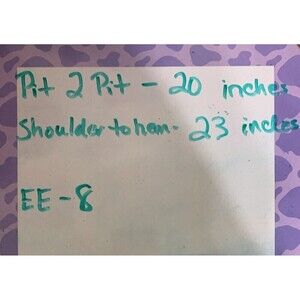 Pit 2 Pit - 20 inches
Shoulder to hem - 23 inches
EE - 8